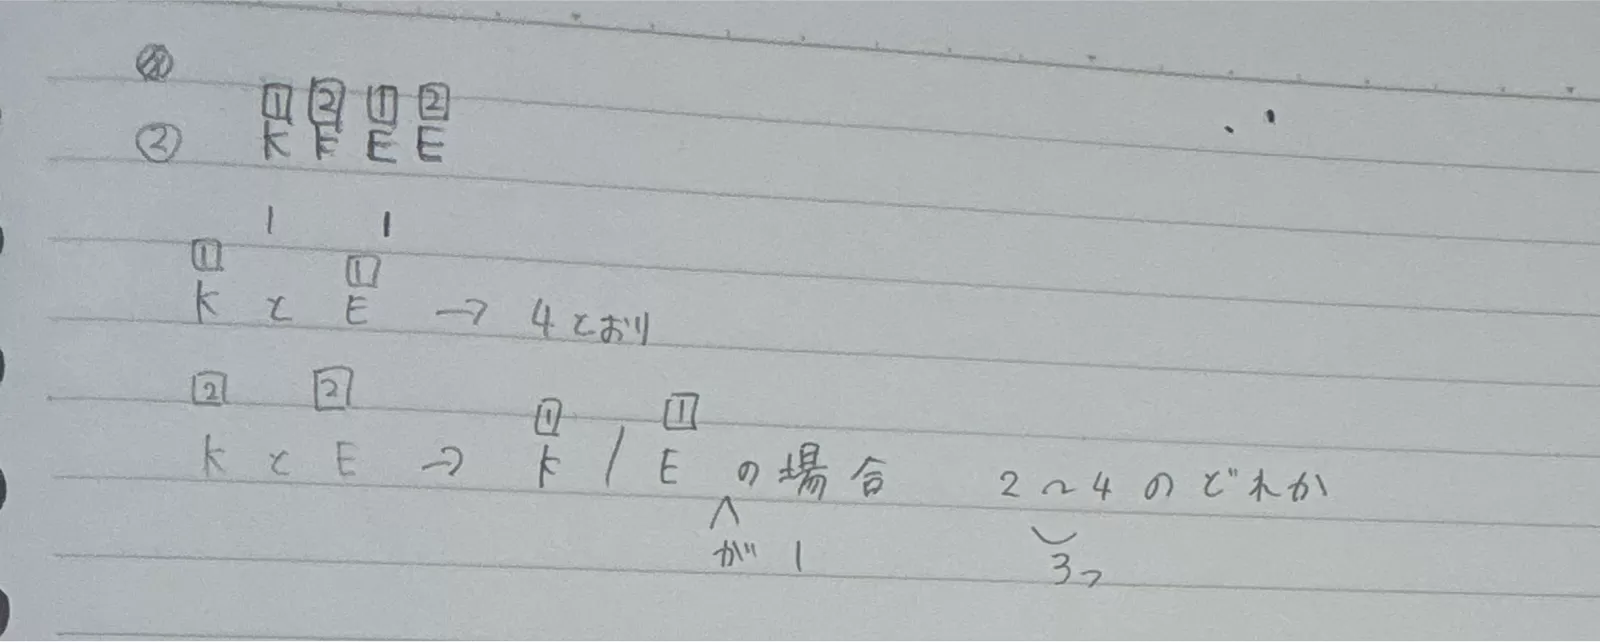 1 2 1 2
② K K E E
1 1
1 1
K と E → 4とおり
2 2 1 1
K と E → K / E の場合 2～4のどれか
が1 3つ